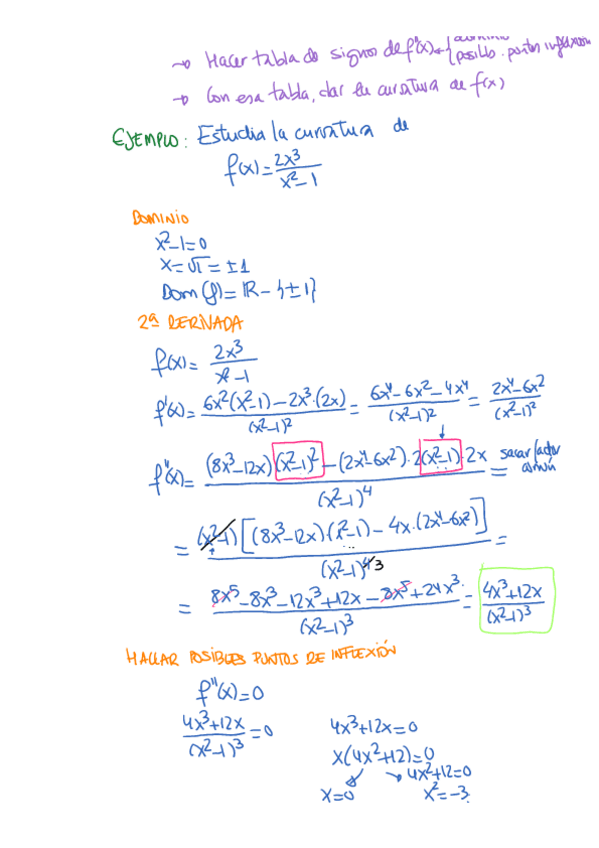 → Hacer tabla de signos de f''(x) { dominio
posibl. puntos inflexión
→ Con esa tabla, dar la curvatura de f(x)
EJEMPLO: Estudia la curvatura de
f(x)=2x³/(x²-1)
DOMINIO
x²-1=0
x=√1=±1
Dom(f)=ℝ-{±1}
2ª DERIVADA
f(x)= 2x³/(x²-1)
f'(x)= (6x²(x²-1)-2x³·(2x))/(x²-1)² = (6x⁴-6x²-4x⁴)/(x²-1)² = (2x⁴-6x²)/(x²-1)²
f''(x)= ((8x³-12x)(x²-1)²-(2x⁴-6x²)·2(x²-1)·2x)/(x²-1)⁴ = sacar factor común
= (x²-1)[(8x³-12x)(x²-1)-4x·(2x⁴-6x²)]/(x²-1)⁴ ³ =
= (8x⁵-8x³-12x³+12x-8x⁵+24x³)/(x²-1)³ = (4x³+12x)/(x²-1)³
HALLAR POSIBLES PUNTOS DE INFLEXIÓN
f''(x)=0
(4x³+12x)/(x²-1)³=0
4x³+12x=0
x(4x²+12)=0
x=0
4x²+12=0
x²=-3